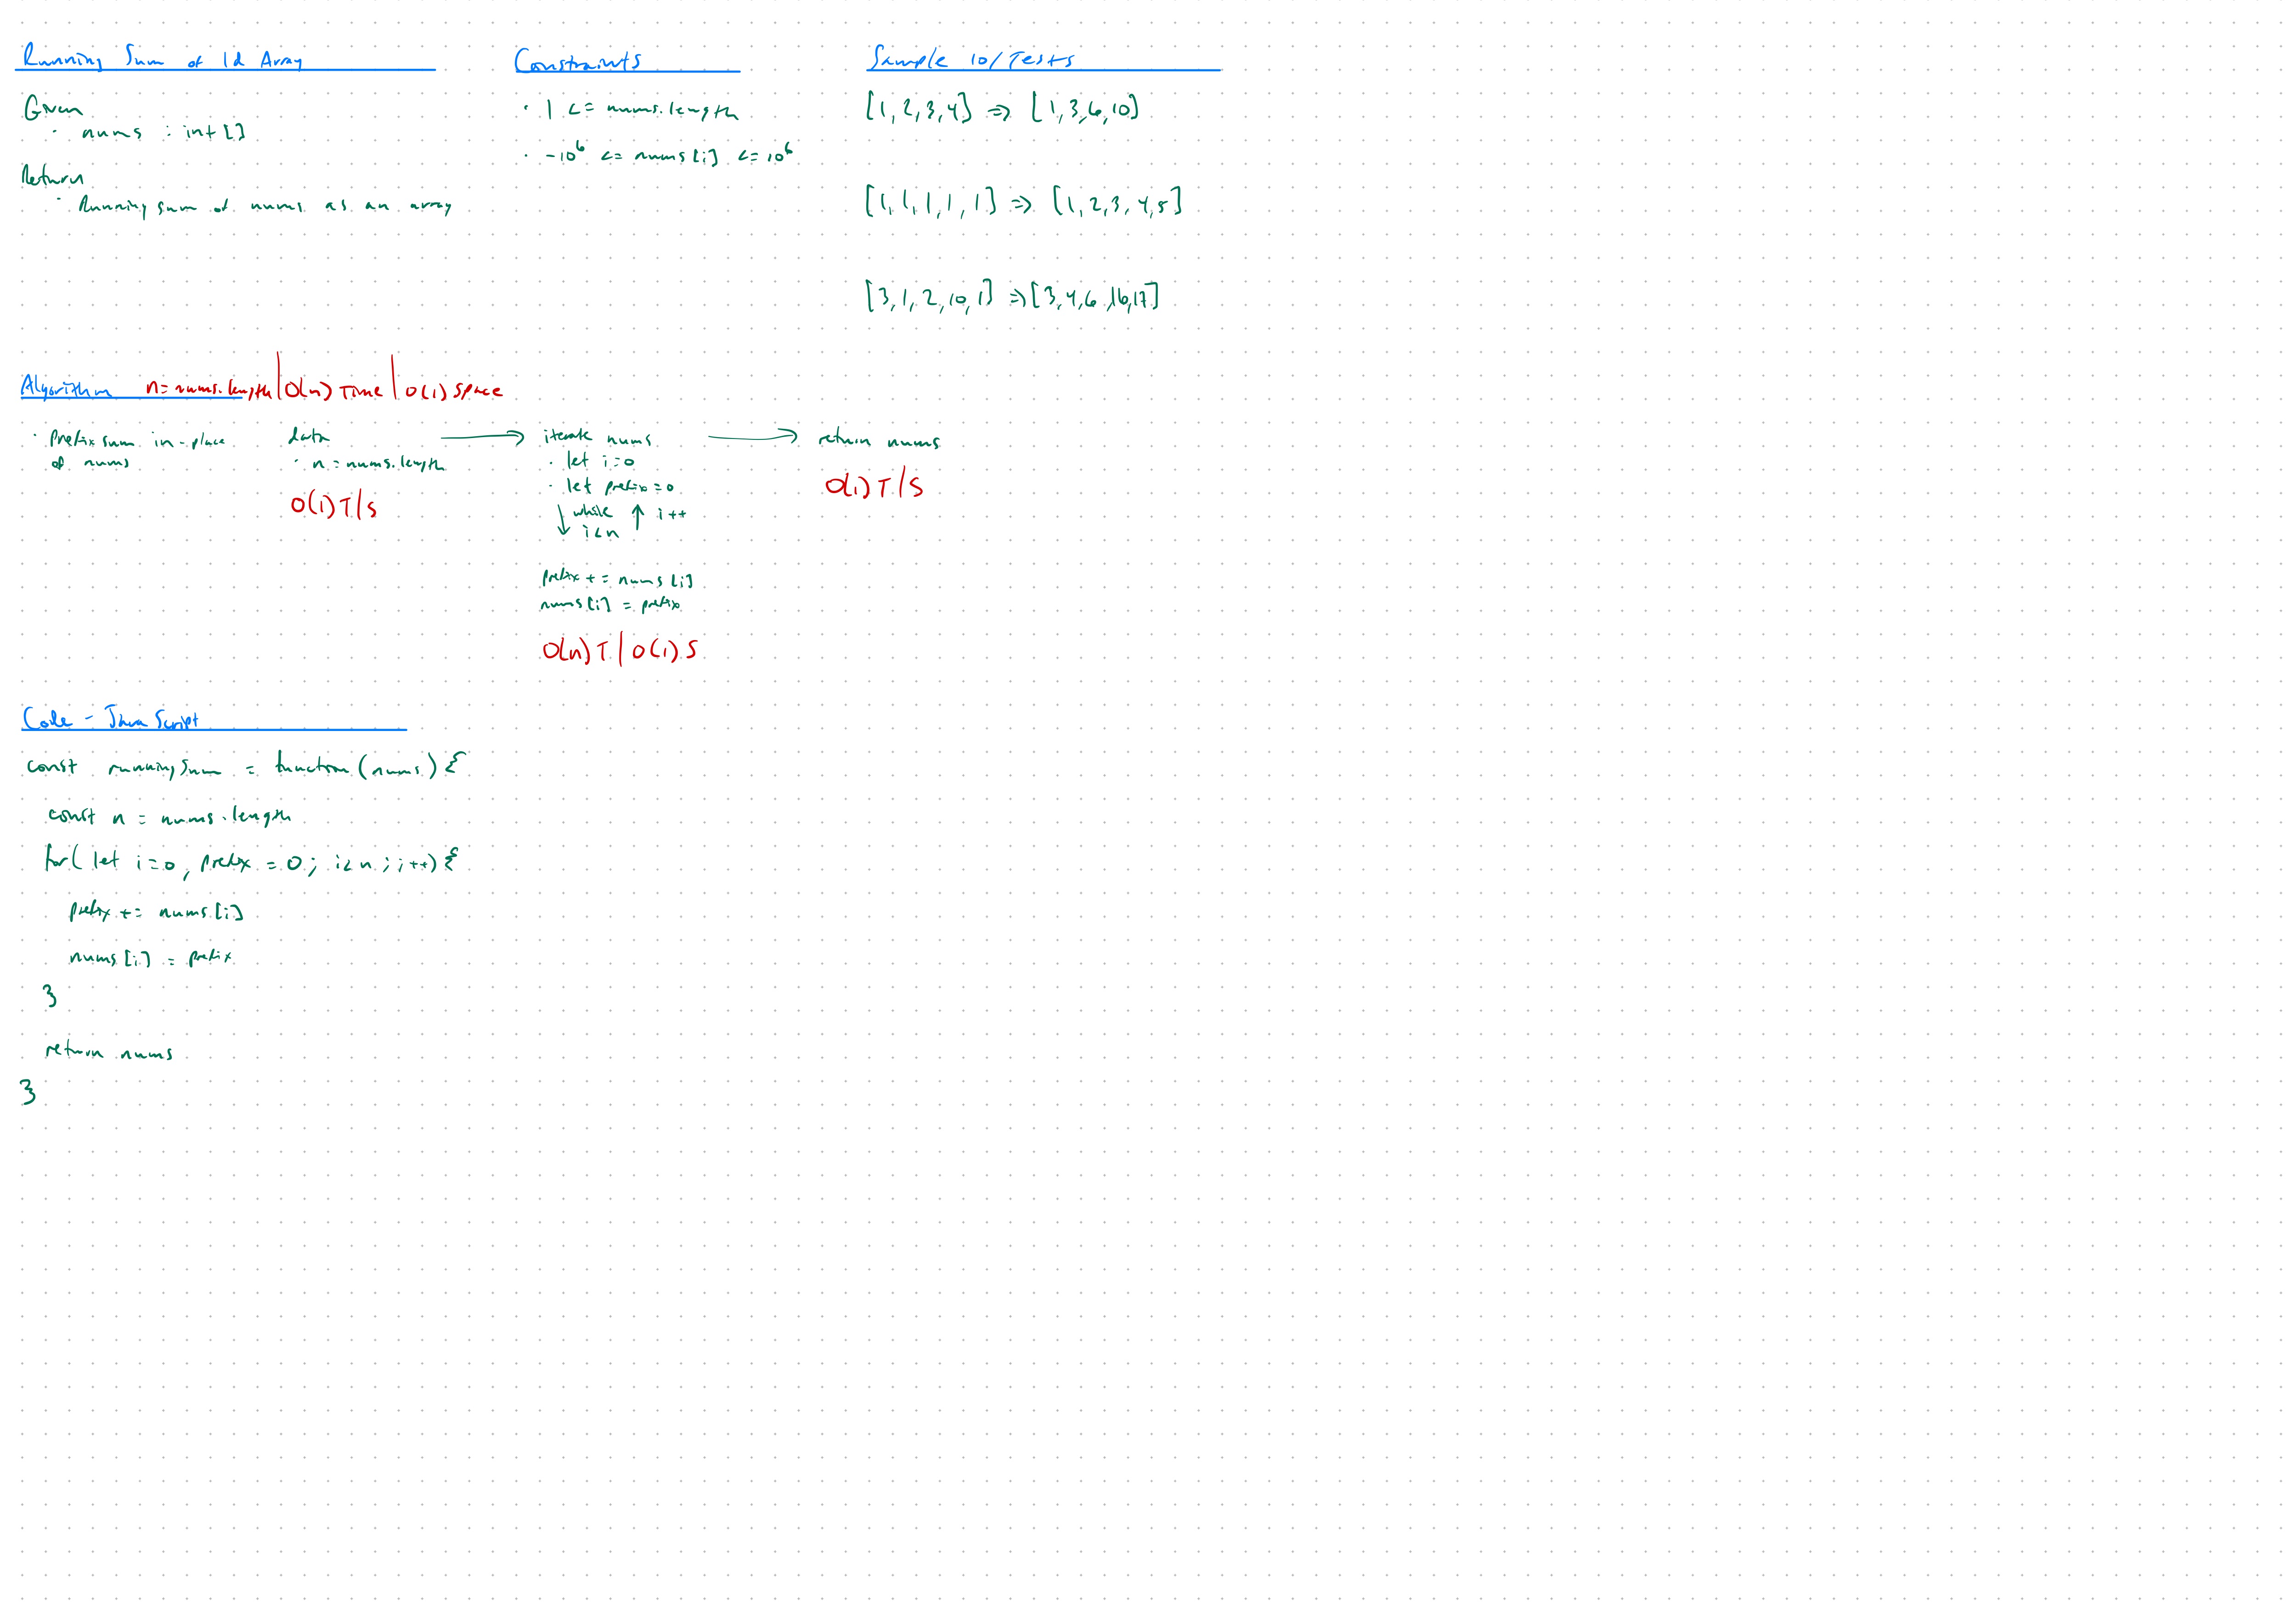 Running Sum of 1d Array
Given
· nums : int[]
Return
· Running sum of nums as an array
Constraints
· 1 <= nums.length
· -10^6 <= nums[i] <= 10^6
Sample IO/Tests
[1,2,3,4] => [1,3,6,10]
[1,1,1,1,1] => [1,2,3,4,5]
[3,1,2,10,1] => [3,4,6,16,17]
Algorithm n=nums.length | O(n) Time | O(1) Space
· Prefix sum in-place
of nums
data
· n = nums.length
O(1) T/S
iterate nums
· let i=0
· let prefix=0
↓ while ↑ i++
i<n
prefix += nums[i]
nums[i] = prefix
O(n) T | O(1) S
return nums
O(1) T/S
Code - JavaScript
const runningSum = function(nums) {
const n = nums.length
for( let i=0, prefix = 0; i<n; i++) {
prefix += nums[i]
nums[i] = prefix
}
return nums
}